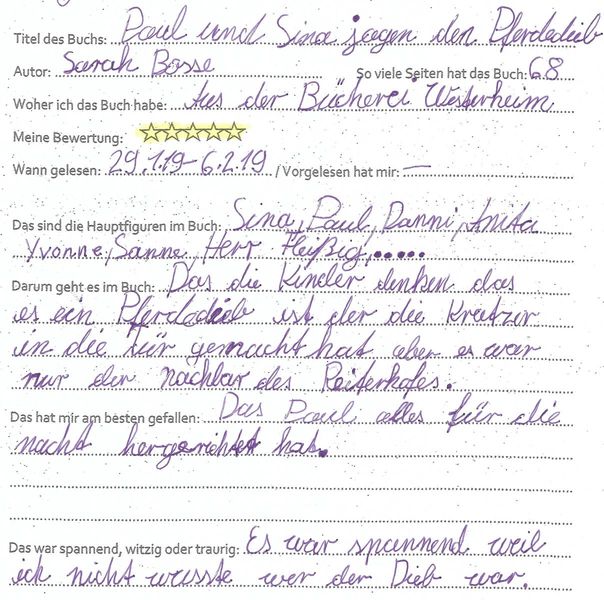 Titel des Buchs: Paul und Sina jagen den Pferdedieb
Autor: Sarah Bosse So viele Seiten hat das Buch: 68
Woher ich das Buch habe: Aus der Bücherei Westerheim
Meine Bewertung: ☆☆☆☆☆
Wann gelesen: 29.1.19-6.2.19 / Vorgelesen hat mir: —
Das sind die Hauptfiguren im Buch: Sina, Paul, Danni, Anita
Yvonne, Sanne, Herr Fleißig, .....
Darum geht es im Buch: Das die Kinder denken das
es ein Pferdedieb ist der die Kratzer
in die tür gemacht hat aber es war
nur der nachbar des Reiterhofes.
Das hat mir am besten gefallen: Das Paul alles für die
nacht hergerichtet hat.
Das war spannend, witzig oder traurig: Es war spannend weil
ich nicht wusste wer der Dieb war.